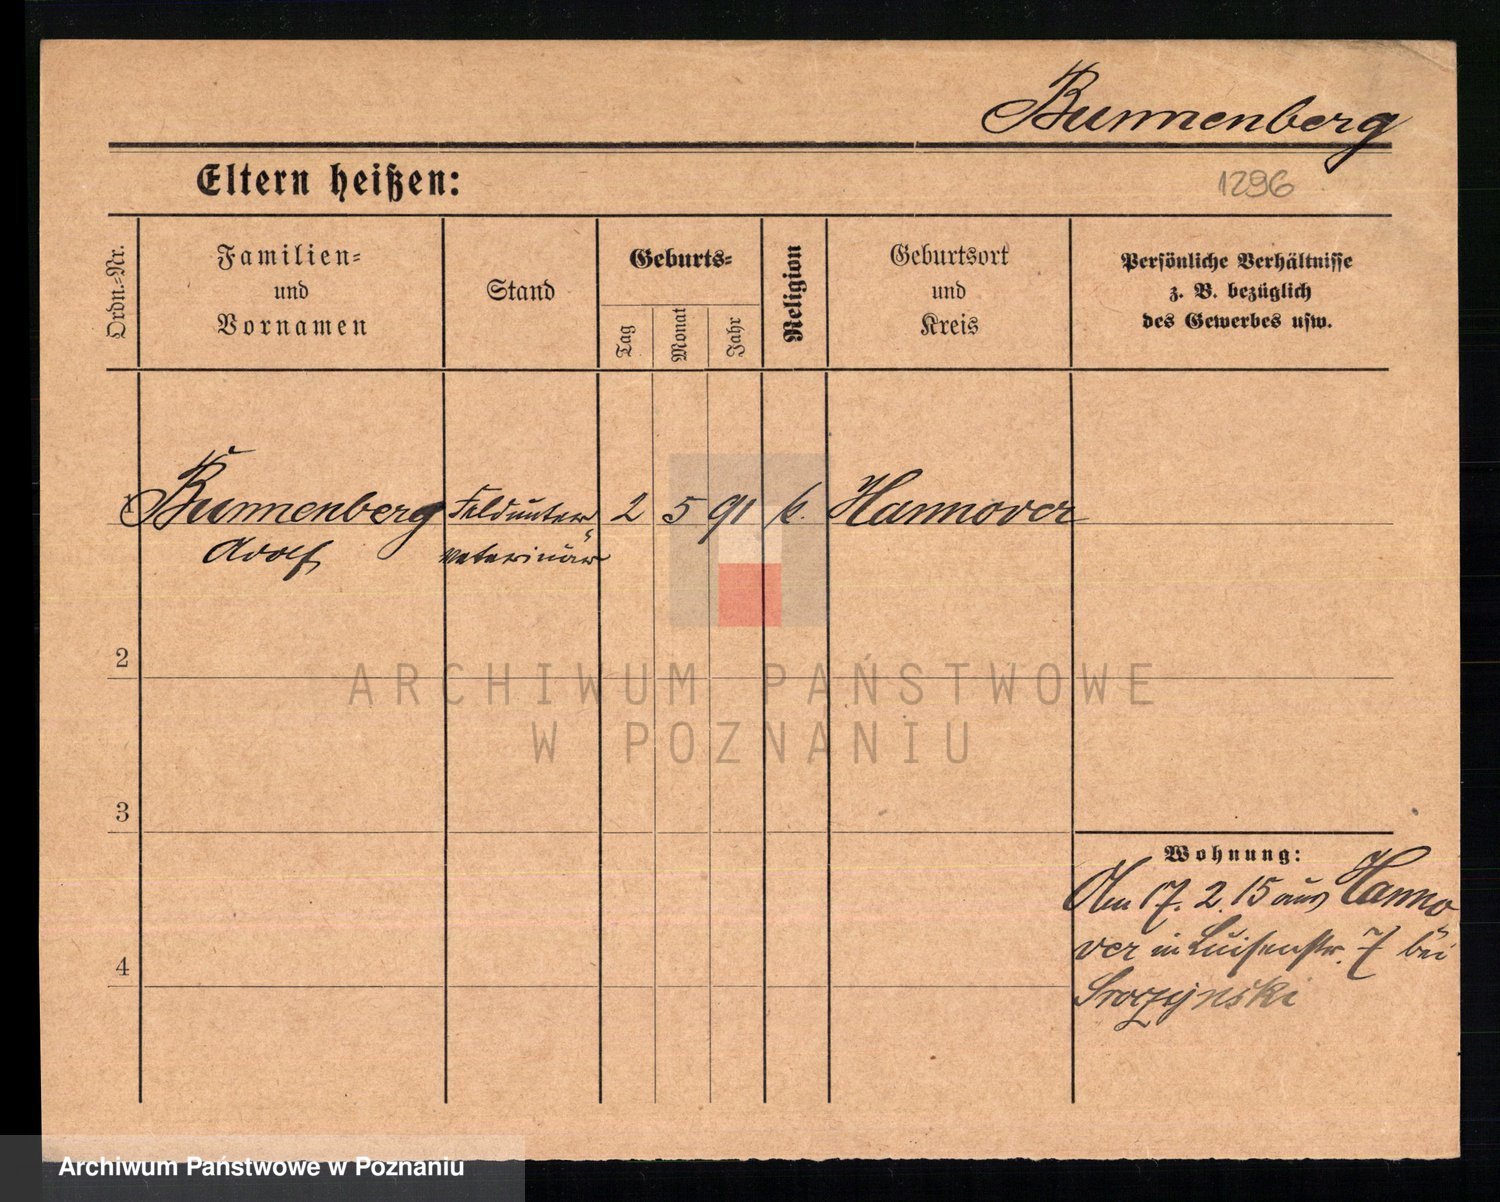 Bunnenberg
Eltern heißen:
1296
Ordn.-Nr.
Familien-
und
Vornamen
Stand
Geburts-
Tag
Monat
Jahr
Religion
Geburtsort
und
Kreis
Persönliche Verhältnisse
z. B. bezüglich
des Gewerbes usw.
1 Bunnenberg Feldunter 2 5 91 k. Hannover
Adolf veterinär
2
ARCHIWUM PAŃSTWOWE
W POZNANIU
3
Wohnung:
Am 17. 2. 15 aus Hanno
ver in Luisenstr. 7 bei
4
Sroczynski
Archiwum Państwowe w Poznaniu